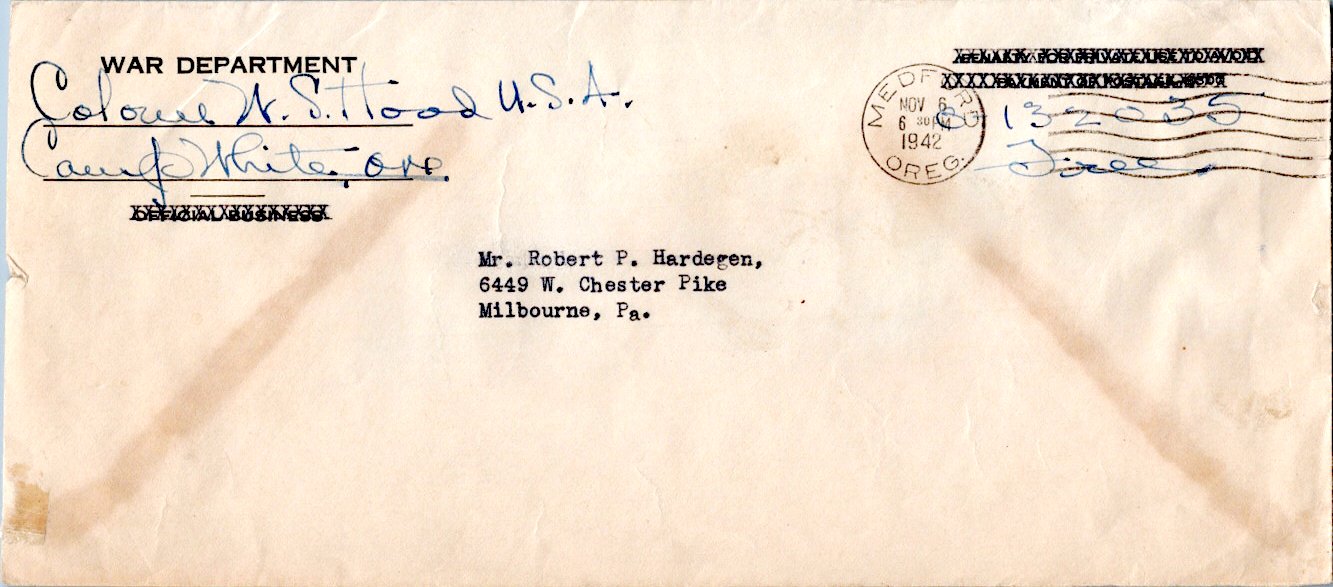 WAR DEPARTMENT
Colonel W. S. Hood U.S.A.
Camp White, Ore.
OFFICIAL BUSINESS
PENALTY FOR PRIVATE USE TO AVOID
PAYMENT OF POSTAGE, $300
MEDFORD
NOV 6
6 30 PM
1942
OREG.
132035
Free
Mr. Robert P. Hardegen,
6449 W. Chester Pike
Milbourne, Pa.